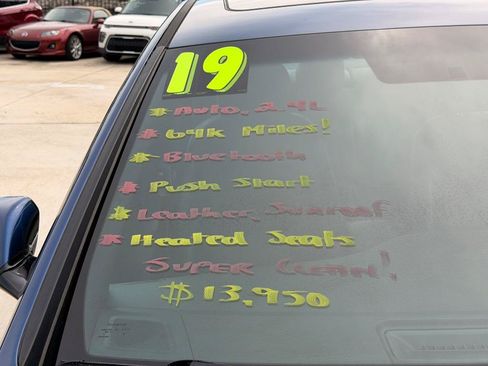 19
* Auto, 2.4L
* 64K Miles!
* Bluetooth
* Push Start
* Leather, Sunroof
* Heated Seats
Super Clean!
$13,950